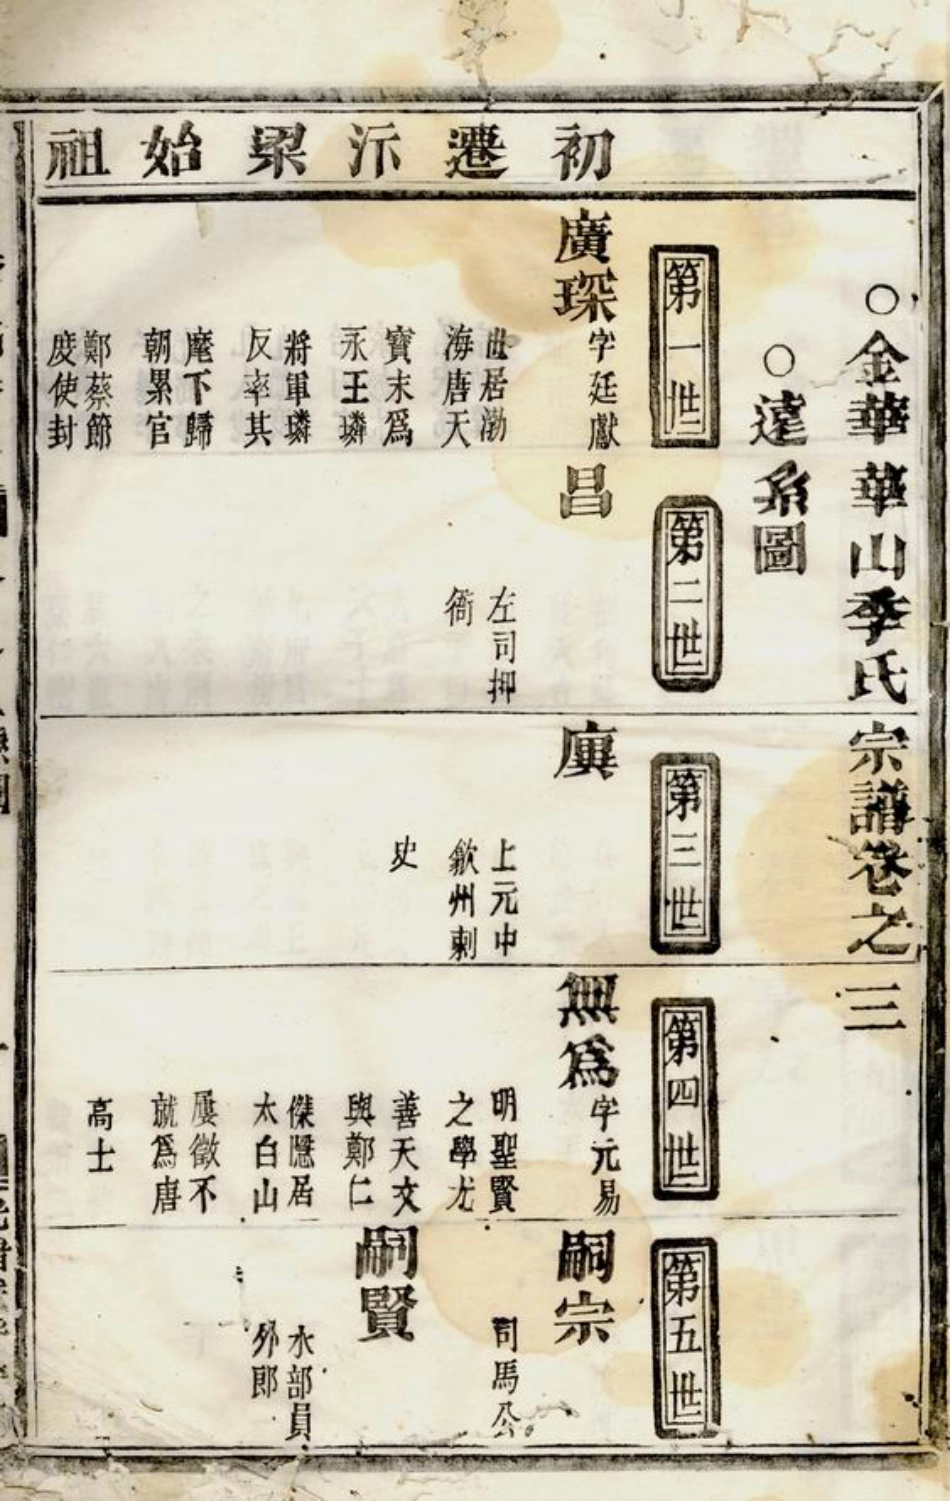 ○金華華山季氏宗譜卷之三
○遠系圖
初遷沂梁始祖
第一世
廣琛字廷獻
世居渤
海唐天
寶末爲
永王璘
將軍璘
反率其
麾下歸
朝累官
鄭蔡節
度使封
第二世
昌
左司押
衙
第三世
廙
上元中
歙州刺
史
第四世
無爲字元易
明聖賢
之學尤
善天文
與鄭仁
傑隱居
太白山
屢徵不
就爲唐
高士
第五世
嗣宗
司馬公
嗣賢
水部員
外郎